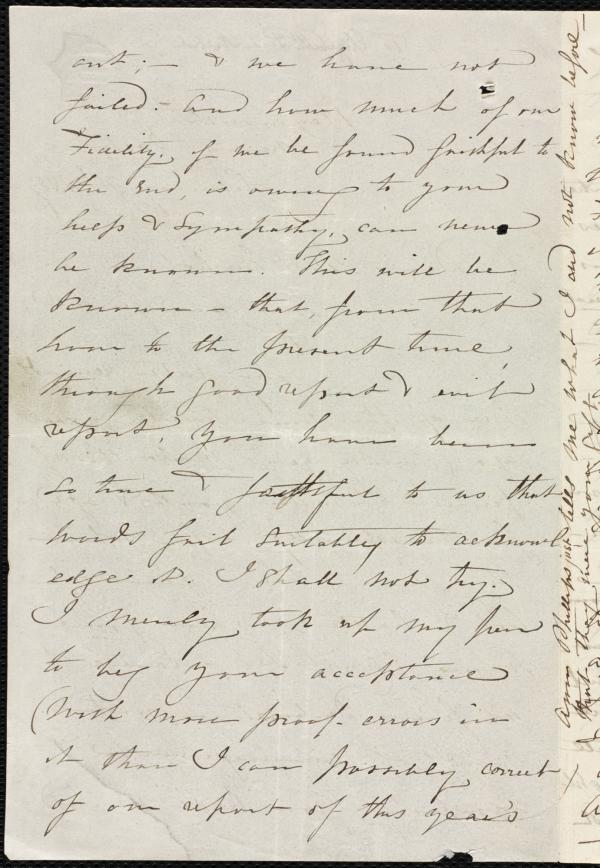 out; — & we have not
failed. — And how much of our
Fidelity, if we be found faithful to
the End, is owing to your
help & Sympathy, can never
be known. This will be
known — that, from that
hour to the present time,
through good report & evil
report, you have been
so true & faithful to us that
words fail suitably to acknowl
edge it. I shall not try.
I merely took up my pen
to beg your acceptance
(with more proof-errors in
it than I can possibly correct
of our report of this year's
Ann Phillips just tells me what I did not know before —
that they are your gift